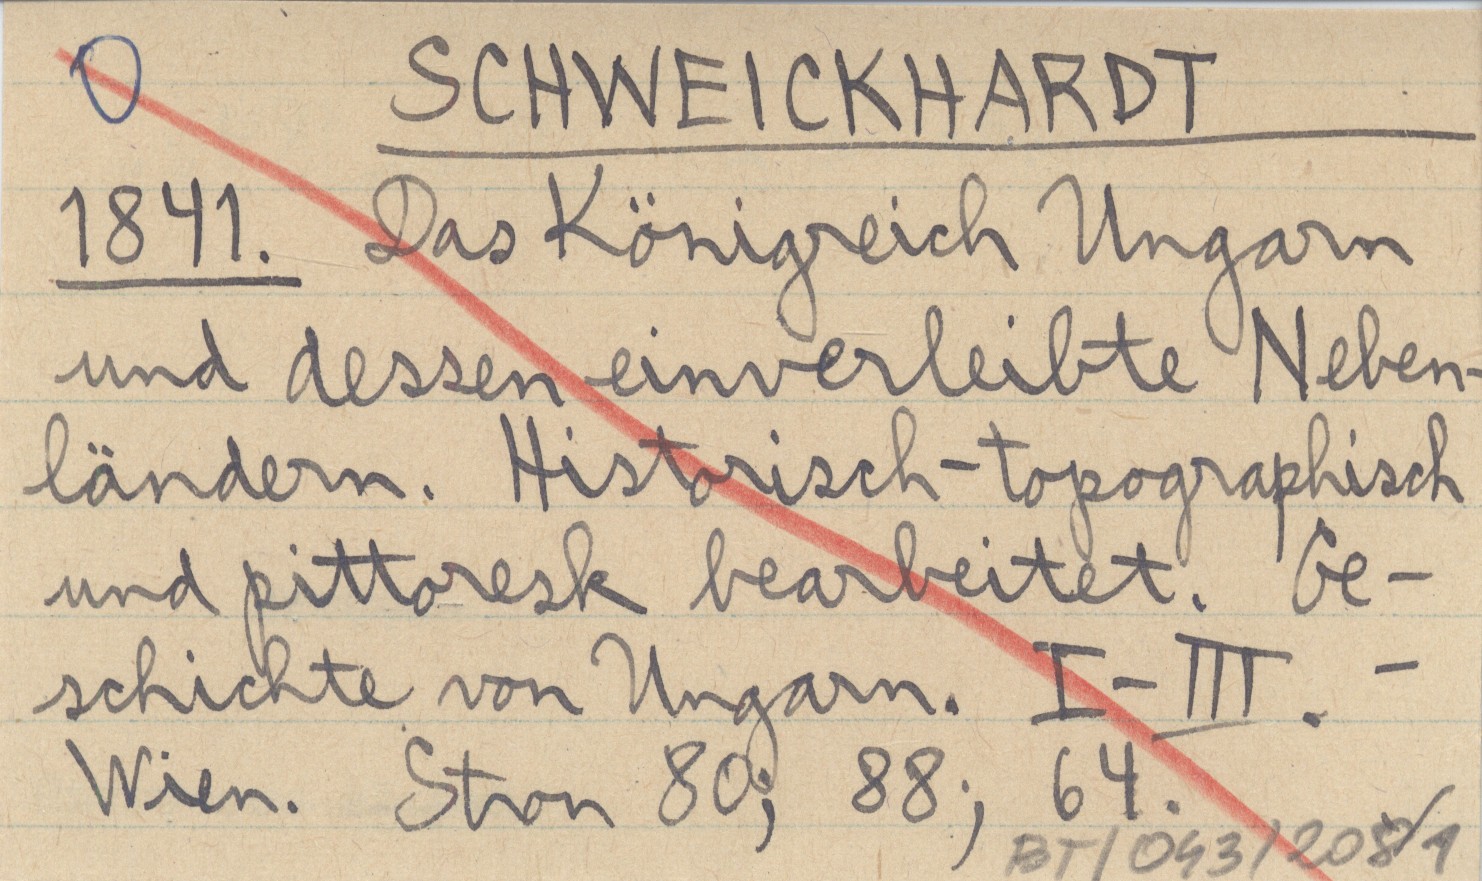 SCHWEICKHARDT
1841. Das Königreich Ungarn
und dessen einverleibte Neben-
ländern. Historisch-topographisch
und pittoresk bearbeitet. Ge-
schichte von Ungarn. I-III. -
Wien. Stron 80; 88; 64.
BT/043/208/1